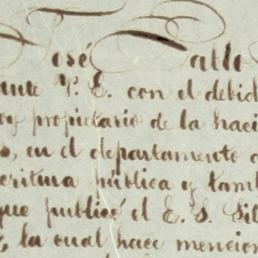 José Pablo
ante V. E. con el debid
soy propietario de la haci
o, en el departamento d
critura pública y tamb
que publicó el E. S. Sil
, la cual hace mencion